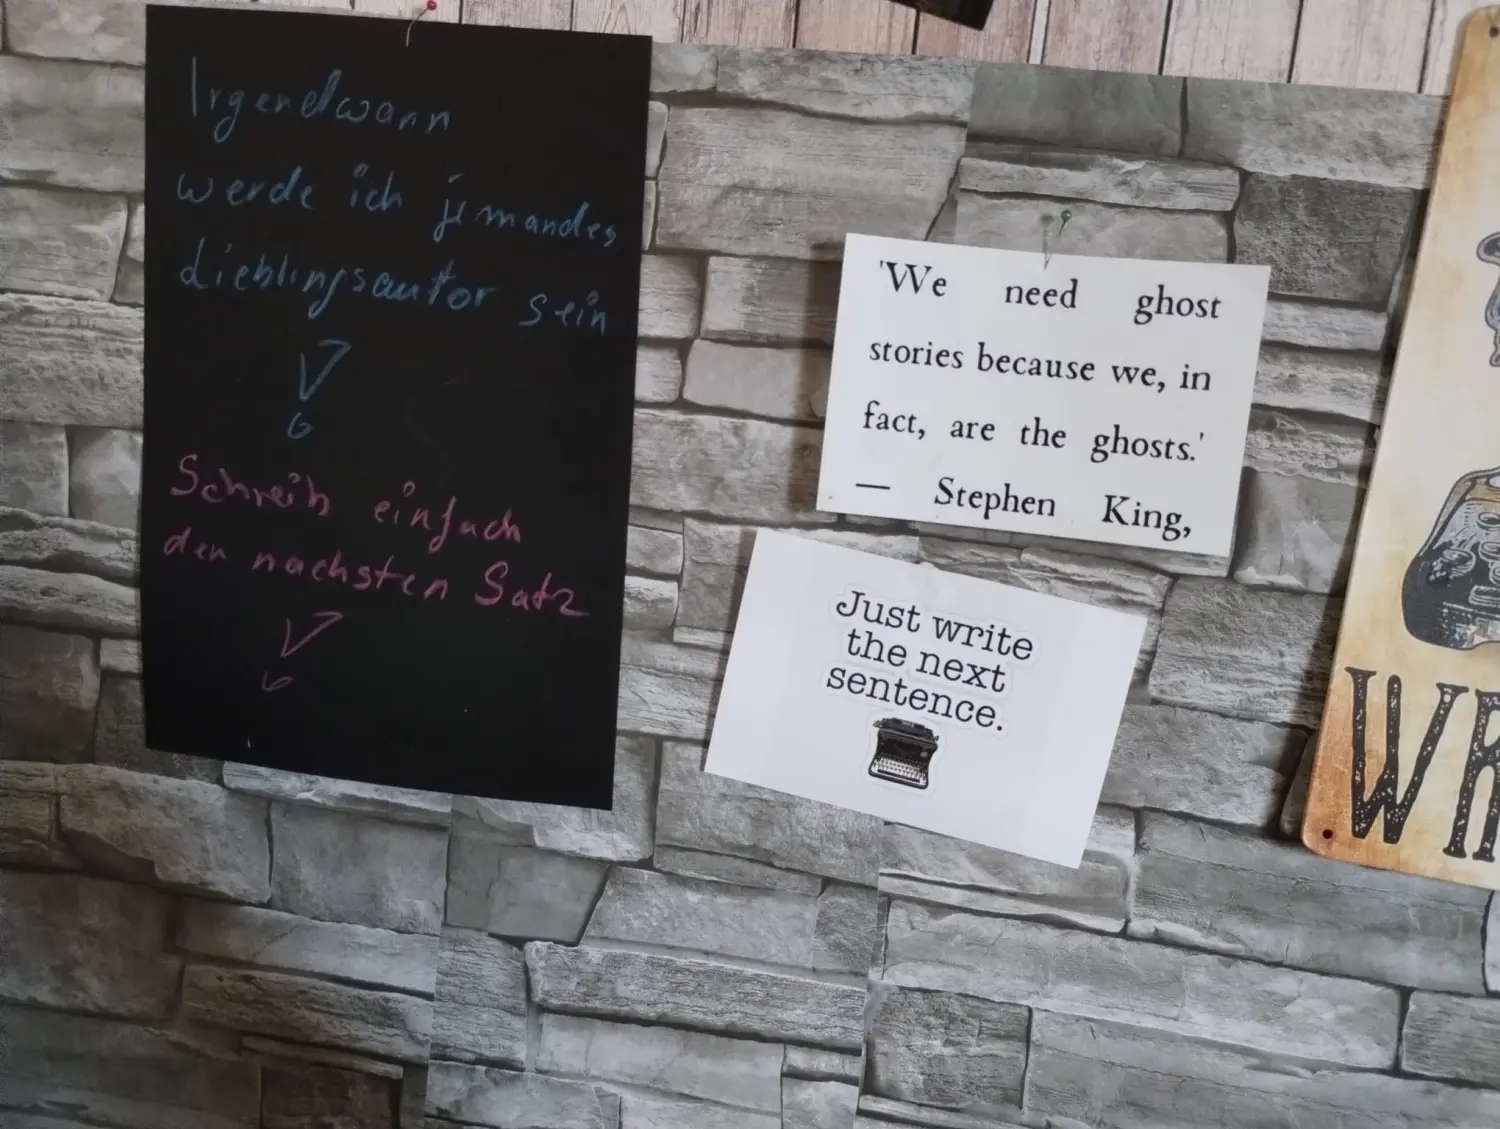 Irgendwann
werde ich jemandes
Lieblingsautor sein
Schreib einfach
den nächsten Satz
'We need ghost
stories because we, in
fact, are the ghosts.'
— Stephen King,
Just write
the next
sentence.
WR